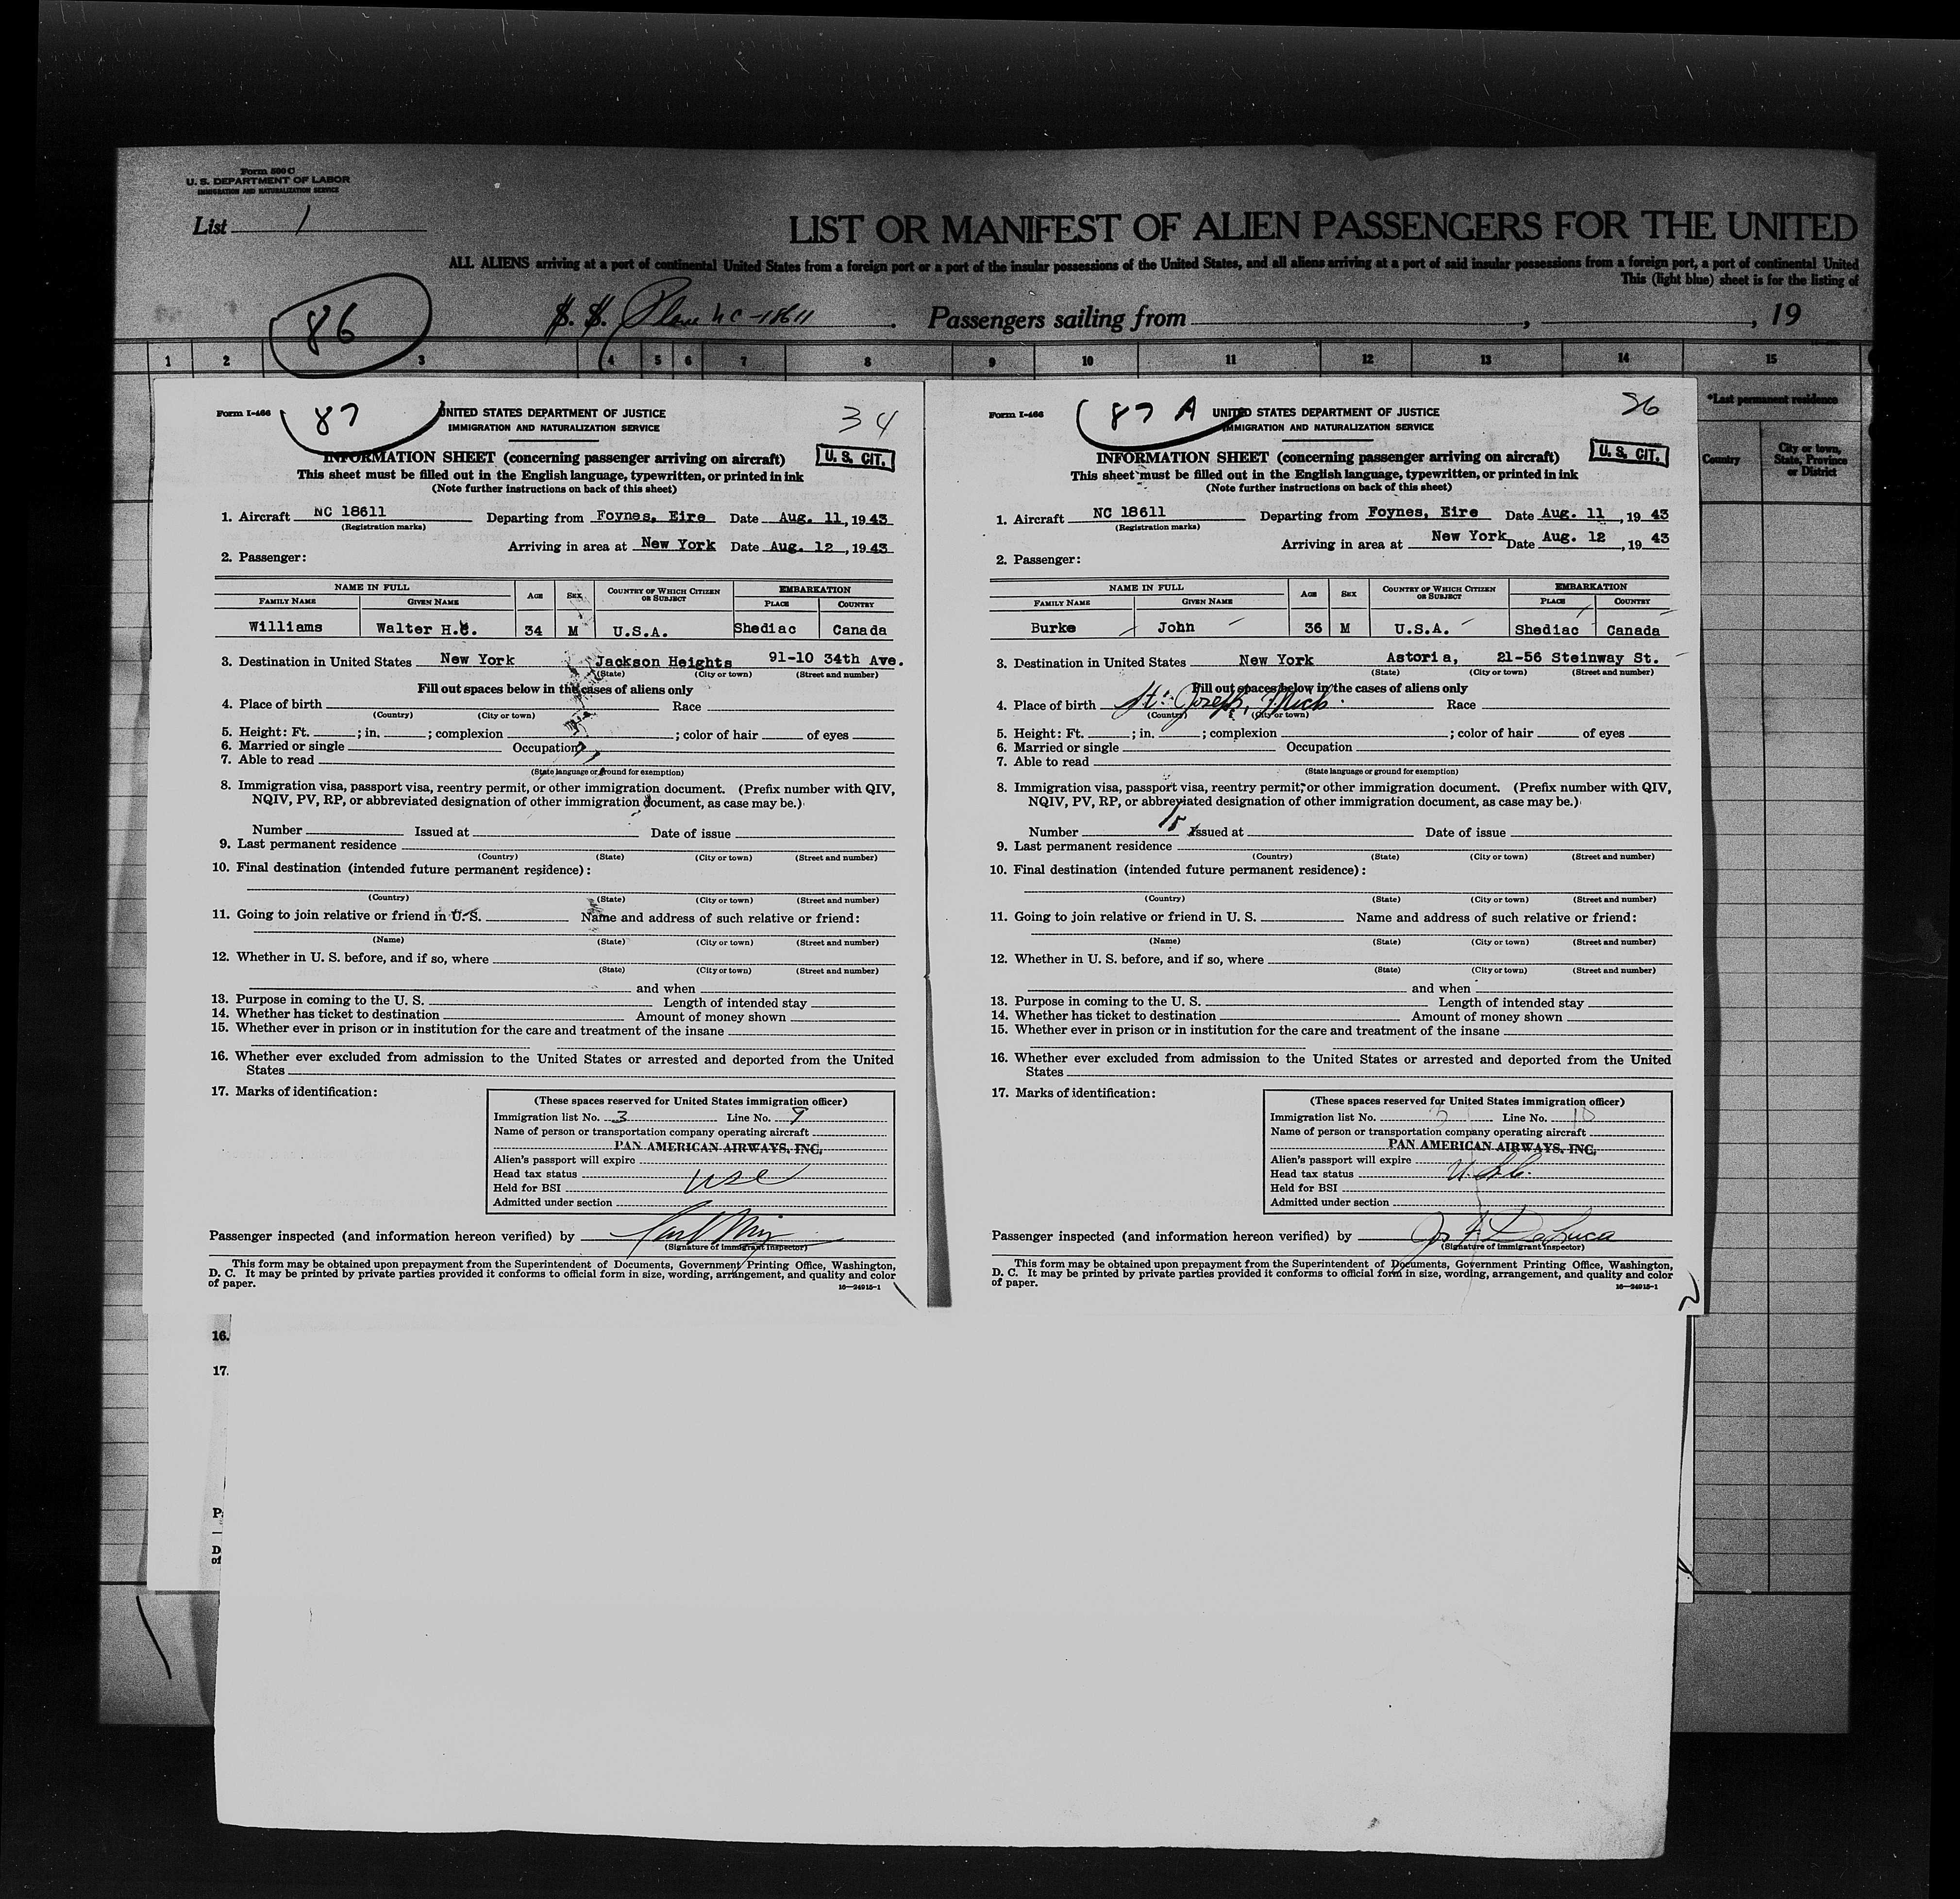 Form 500 C
U. S. DEPARTMENT OF LABOR
IMMIGRATION AND NATURALIZATION SERVICE
List 1
LIST OR MANIFEST OF ALIEN PASSENGERS FOR THE UNITED
ALL ALIENS arriving at a port of continental United States from a foreign port or a port of the insular possessions of the United States, and all aliens arriving at a port of said insular possessions from a foreign port, a port of continental United
This (light blue) sheet is for the listing of
86
S. S. Plane NC-18611 Passengers sailing from , , 19
1 2 3 4 5 6 7 8 9 10 11 12 13 14 15
*Last permanent residence
Country
City or town,
State, Province
or District
Form I-466
87
UNITED STATES DEPARTMENT OF JUSTICE
34
IMMIGRATION AND NATURALIZATION SERVICE
INFORMATION SHEET (concerning passenger arriving on aircraft)
U. S. CIT.
This sheet must be filled out in the English language, typewritten, or printed in ink
(Note further instructions on back of this sheet)
1. Aircraft NC 18611 Departing from Foynes, Eire Date Aug. 11, 1943
(Registration marks)
Arriving in area at New York Date Aug. 12, 1943
2. Passenger:
NAME IN FULL
FAMILY NAME GIVEN NAME AGE SEX COUNTRY OF WHICH CITIZEN OR SUBJECT EMBARKATION PLACE COUNTRY
Williams Walter H.C. 34 M U.S.A. Shediac Canada
3. Destination in United States New York Jackson Heights 91-10 34th Ave.
(State) (City or town) (Street and number)
Fill out spaces below in the cases of aliens only
4. Place of birth Race
(Country) (City or town)
5. Height: Ft. ; in. ; complexion ; color of hair of eyes
6. Married or single Occupation
7. Able to read
(State language or ground for exemption)
8. Immigration visa, passport visa, reentry permit, or other immigration document. (Prefix number with QIV,
NQIV, PV, RP, or abbreviated designation of other immigration document, as case may be.)
Number Issued at Date of issue
9. Last permanent residence
(Country) (State) (City or town) (Street and number)
10. Final destination (intended future permanent residence):
(Country) (State) (City or town) (Street and number)
11. Going to join relative or friend in U. S. Name and address of such relative or friend:
(Name) (State) (City or town) (Street and number)
12. Whether in U. S. before, and if so, where
(State) (City or town) (Street and number)
and when
13. Purpose in coming to the U. S. Length of intended stay
14. Whether has ticket to destination Amount of money shown
15. Whether ever in prison or in institution for the care and treatment of the insane
16. Whether ever excluded from admission to the United States or arrested and deported from the United
States
17. Marks of identification:
(These spaces reserved for United States immigration officer)
Immigration list No. 3 Line No. 9
Name of person or transportation company operating aircraft
PAN AMERICAN AIRWAYS, INC.
Alien's passport will expire
Head tax status USC
Held for BSI
Admitted under section
Passenger inspected (and information hereon verified) by
(Signature of immigrant inspector)
This form may be obtained upon prepayment from the Superintendent of Documents, Government Printing Office, Washington,
D. C. It may be printed by private parties provided it conforms to official form in size, wording, arrangement, and quality and color
of paper.
16—24915-1
Form I-466
87 A
UNITED STATES DEPARTMENT OF JUSTICE
36
IMMIGRATION AND NATURALIZATION SERVICE
INFORMATION SHEET (concerning passenger arriving on aircraft)
U. S. CIT.
This sheet must be filled out in the English language, typewritten, or printed in ink
(Note further instructions on back of this sheet)
1. Aircraft NC 18611 Departing from Foynes, Eire Date Aug. 11, 1943
(Registration marks)
Arriving in area at New York Date Aug. 12, 1943
2. Passenger:
NAME IN FULL
FAMILY NAME GIVEN NAME AGE SEX COUNTRY OF WHICH CITIZEN OR SUBJECT EMBARKATION PLACE COUNTRY
Burke John 36 M U.S.A. Shediac Canada
3. Destination in United States New York Astoria, 21-56 Steinway St.
(State) (City or town) (Street and number)
Fill out spaces below in the cases of aliens only
4. Place of birth St. Joseph, Mich. Race
(Country) (City or town)
5. Height: Ft. ; in. ; complexion ; color of hair of eyes
6. Married or single Occupation
7. Able to read
(State language or ground for exemption)
8. Immigration visa, passport visa, reentry permit, or other immigration document. (Prefix number with QIV,
NQIV, PV, RP, or abbreviated designation of other immigration document, as case may be.)
Number 15 Issued at Date of issue
9. Last permanent residence
(Country) (State) (City or town) (Street and number)
10. Final destination (intended future permanent residence):
(Country) (State) (City or town) (Street and number)
11. Going to join relative or friend in U. S. Name and address of such relative or friend:
(Name) (State) (City or town) (Street and number)
12. Whether in U. S. before, and if so, where
(State) (City or town) (Street and number)
and when
13. Purpose in coming to the U. S. Length of intended stay
14. Whether has ticket to destination Amount of money shown
15. Whether ever in prison or in institution for the care and treatment of the insane
16. Whether ever excluded from admission to the United States or arrested and deported from the United
States
17. Marks of identification:
(These spaces reserved for United States immigration officer)
Immigration list No. 3 Line No. 10
Name of person or transportation company operating aircraft
PAN AMERICAN AIRWAYS, INC.
Alien's passport will expire
Head tax status U.S.C.
Held for BSI
Admitted under section
Passenger inspected (and information hereon verified) by Jos F DeLuca
(Signature of immigrant inspector)
This form may be obtained upon prepayment from the Superintendent of Documents, Government Printing Office, Washington,
D. C. It may be printed by private parties provided it conforms to official form in size, wording, arrangement, and quality and color
of paper.
16—24915-1
2
16.
17.
P
D
of